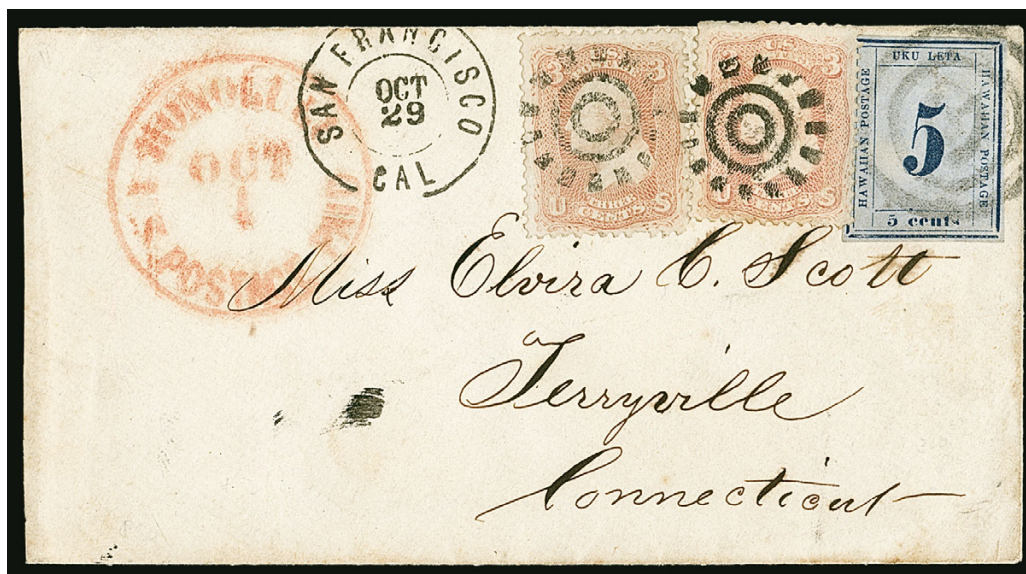 HONOLU
OCT
1
POST
SAN FRANCISCO
OCT
29
CAL
3 3
THREE
U CENTS S
U.S.
3
U CENTS S
UKU LETA
HAWAIIAN POSTAGE
5
HAWAIIAN POSTAGE
5 cents
Miss Elvira C. Scott
Terryville
Connecticut